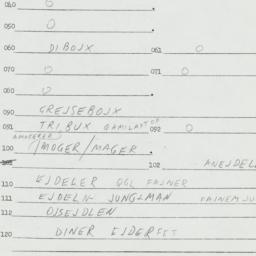 040 O
050 O
060 DIBOJX 061 O
070 O 071 O
080 O
090 GREJSEBOJX
091 TRIBUX 092 O
100 /MOGER/MAGER
102 ANEJDEL
110 EJDELER OGL FAJNER
111 EJDELN JUNGLMAN FAJNEM JU
112 DJSEJDLEN
120 DINER EJDERFET